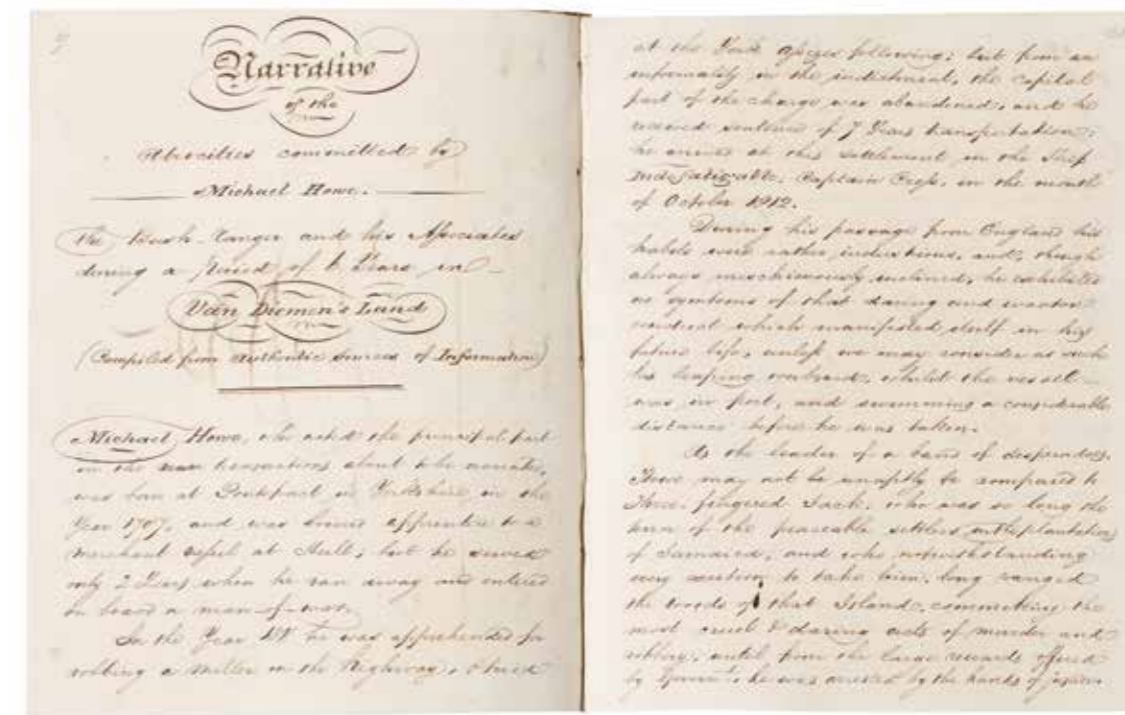 Narrative
of the
Atrocities committed by
Michael Howe.
the Bush-ranger and his Associates
during a Period of 6 Years in
Van Diemen's Land
(Compiled from authentic Sources of Information)
Michael Howe, who acted the principal part
in the transactions about to be narrated,
was born at Pontefract in Yorkshire in the
Year 1787, and was bound apprentice to a
merchant vessel at Hull; but he served
only 2 Years when he ran away and entered
on board a man-of-war.
In the Year he was apprehended for
robbing a Miller on the Highway, & tried
at the York Assizes following; but from an
informality in the indictment, the capital
part of the charge was abandoned, and he
received sentence of 7 Years transportation;
he arrived at this settlement in the Ship
Indefatigable, Captain Cross, in the month
of October 1912.
During his passage from England his
habits were rather industrious, and, though
always mischievously inclined, he exhibited
no symptoms of that daring and
which manifested itself in his
future life, unless we may consider as such
his leaping overboard, whilst the vessel
was in port, and swimming a considerable
distance before he was taken.
As the leader of a band of desperadoes,
Howe may not be unaptly be compared to
Three-fingered Jack, who was so long the
terror of the peaceable settlers on the plantations
of Jamaica, and who notwithstanding
every exertion to take him, long ranged
the woods of that Island, committing the
most cruel & daring acts of murder and
robbery, until from the large rewards offered
by Governmt. he was arrested by the hands of justice